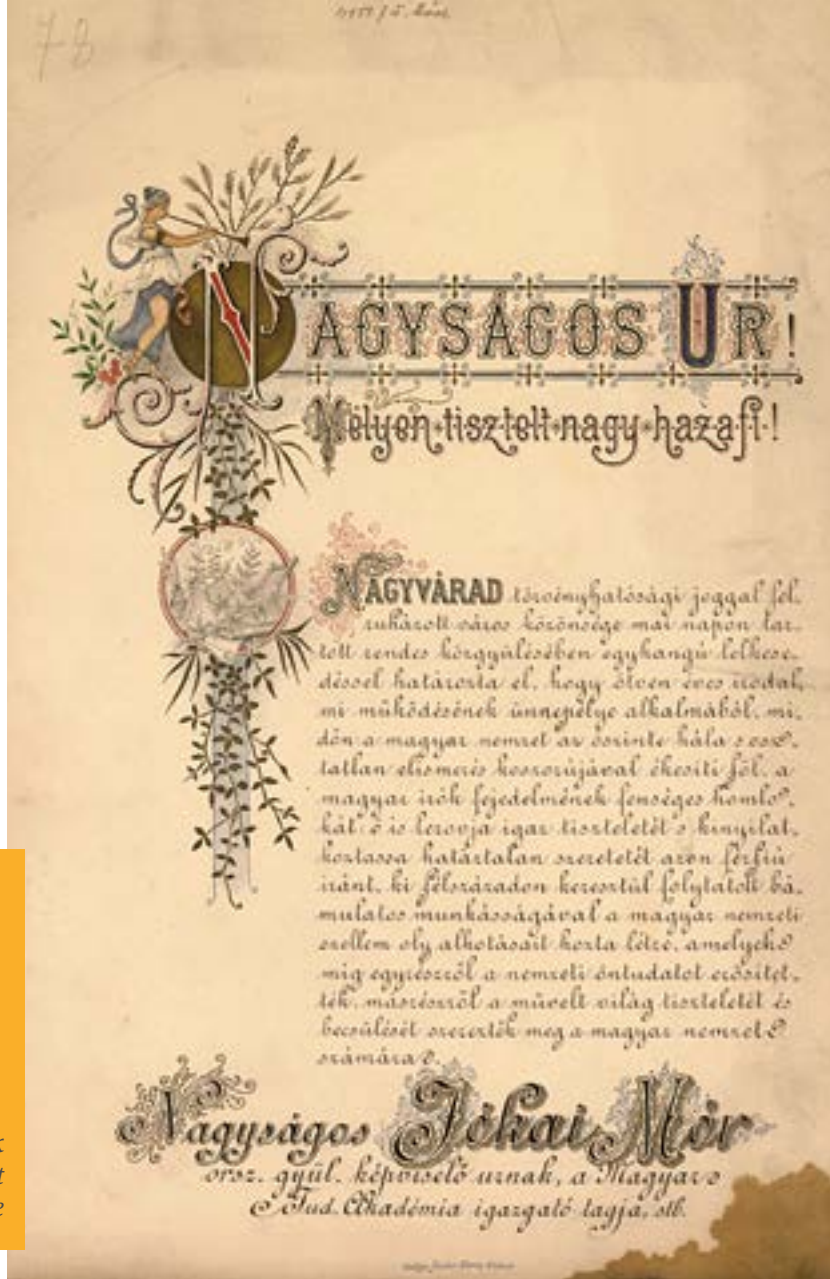 78
NAGYSÁGOS UR!
Mélyen tisztelt nagy hazafi!
NAGYVÁRAD törvényhatósági joggal fel-
ruházott város közönsége mai napon tar-
tott rendes közgyülésében egyhangú lelkese-
déssel határozta el, hogy ötven éves irodal-
mi müködésének ünnepélye alkalmából, mi-
dőn a magyar nemzet az őszinte hála s
elismerés koszorújával ékesiti föl, a
magyar irók fejedelmének fenséges homlo-
kát, ő is lerovja igaz tiszteletét s kinyilat-
koztassa határtalan szeretetét azon férfiú
iránt, ki félszázadon keresztül folytatott bá-
mulatos munkásságával a magyar nemzeti
szellem oly alkotásait hozta létre, amelyek
mig egyrészről a nemzeti öntudatot erősitet-
ték, másrészről a művelt világ tiszteletét és
becsülését szerezték meg a magyar nemzet
számára.
Nagyságos Jókai Mór
orsz. gyül. képviselő urnak, a Magyar
Tud. Akadémia igazgató tagja, stb.
k
t
e